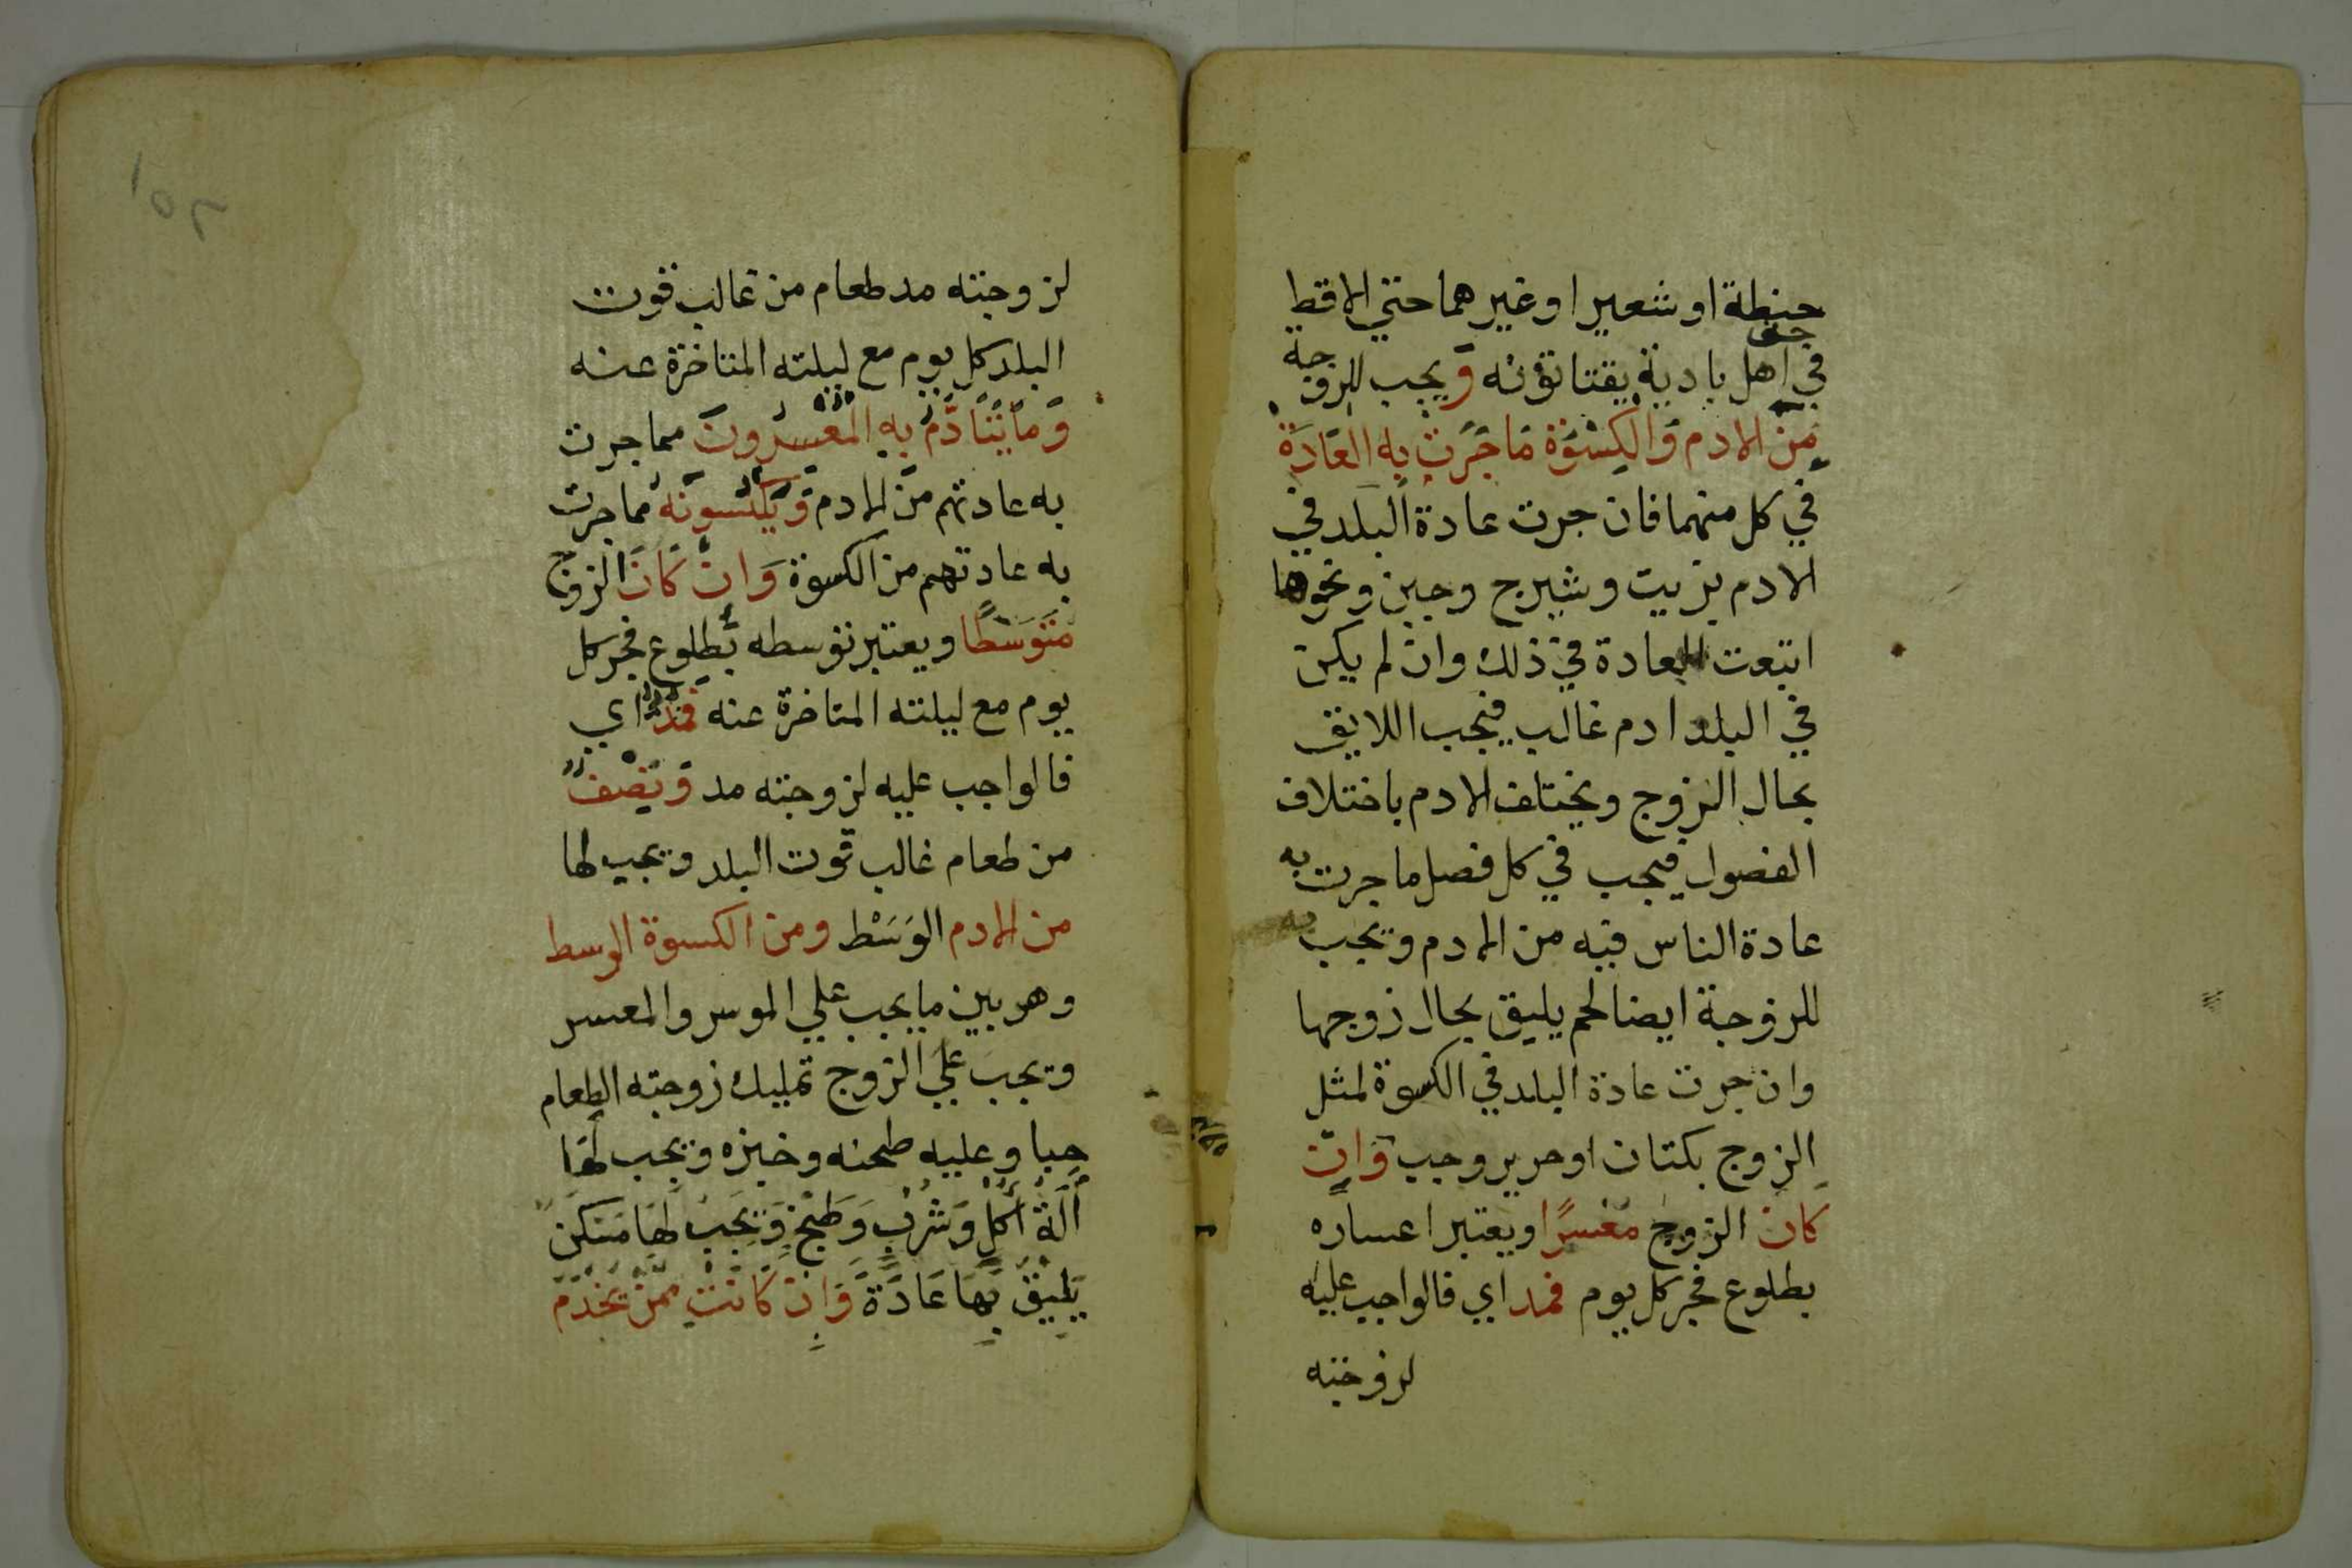 حنطة او شعيرا او غيرهما حتي الاقط
في اهل بادية يقتاتونه ويجب للزوجة
من الادم والكسوة ما جرت به العادة
في كل منهما فان جرت عادة البلد في
الادم بزيت وشيرج وجبن ونحوها
اتبعت العادة في ذلك وان لم يكن
في البلد ادم غالب فيجب اللايق
بحال الزوج ويختلف الادم باختلاف
الفصول فيجب في كل فصل ما جرت به
عادة الناس فيه من الادم ويجب
للزوجة ايضا لحم يليق بحال زوجها
وان جرت عادة البلد في الكسوة لمثل
الزوج بكتان او حرير وجب وان
كان الزوج معسرا ويعتبر اعساره
بطلوع فجر كل يوم فمد اي فالواجب عليه
لزوجته
١٥٢
لزوجته مد طعام من غالب قوت
البلد كل يوم مع ليلته المتاخرة عنه
وما يتادم به المعسرون مما جرت
به عادتهم من الادم ويكسونه مما جرت
به عادتهم من الكسوة وان كان الزوج
متوسطا ويعتبر توسطه بطلوع فجر كل
يوم مع ليلته المتاخرة عنه فمد اي
فالواجب عليه لزوجته مد ونصف
من طعام غالب قوت البلد ويجب لها
من الادم الوَسَط ومن الكسوة الوسط
وهو بين ما يجب علي الموسر والمعسر
ويجب علي الزوج تمليك زوجته الطعام
حبا وعليه طحنه وخبزه ويجب لها
آلة أكل وشرب وطبخ ويجب لها مسكن
يليق بها عادة وان كانت ممن يخدم